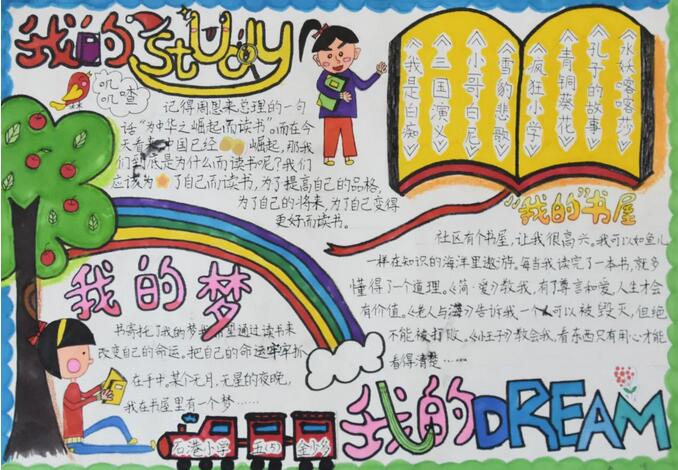 我的Study
叽
叽喳
记得周恩来总理的一句
话“为中华之崛起而读书”。而在今
天看来中国已经崛起,那我
们到底是为什么而读书呢?我们
应该为了自己而读书,为了提高自己的品格,
为了自己的将来,为了自己变得
更好而读书。
《我是白痴》
《三国演义》
《小哥白尼》
《雪豹悲歌》
《疯狂小学》
《青铜葵花》
《孔子的故事》
《水妖喀喀莎》
“我的”书屋
社区有个书屋,让我很高兴。我可以如鱼儿
一样在知识的海洋里遨游。每当我读完了一本书,就多
懂得了一个道理。《简·爱》教我,有了尊言和爱,人生才会
有价值。《老人与海》告诉我一个人可以被毁灭,但绝
不能被打败。《小王子》教会我,看东西只有用心才能
看得清楚……
我的梦
书寄托了我的梦我希望通过读书来
改变自己的命运,把自己的命运牢牢抓
在手中,某个无月,无星的夜晚,
我在书屋里有一个梦……
石港小学 五(4)
我的DREAM